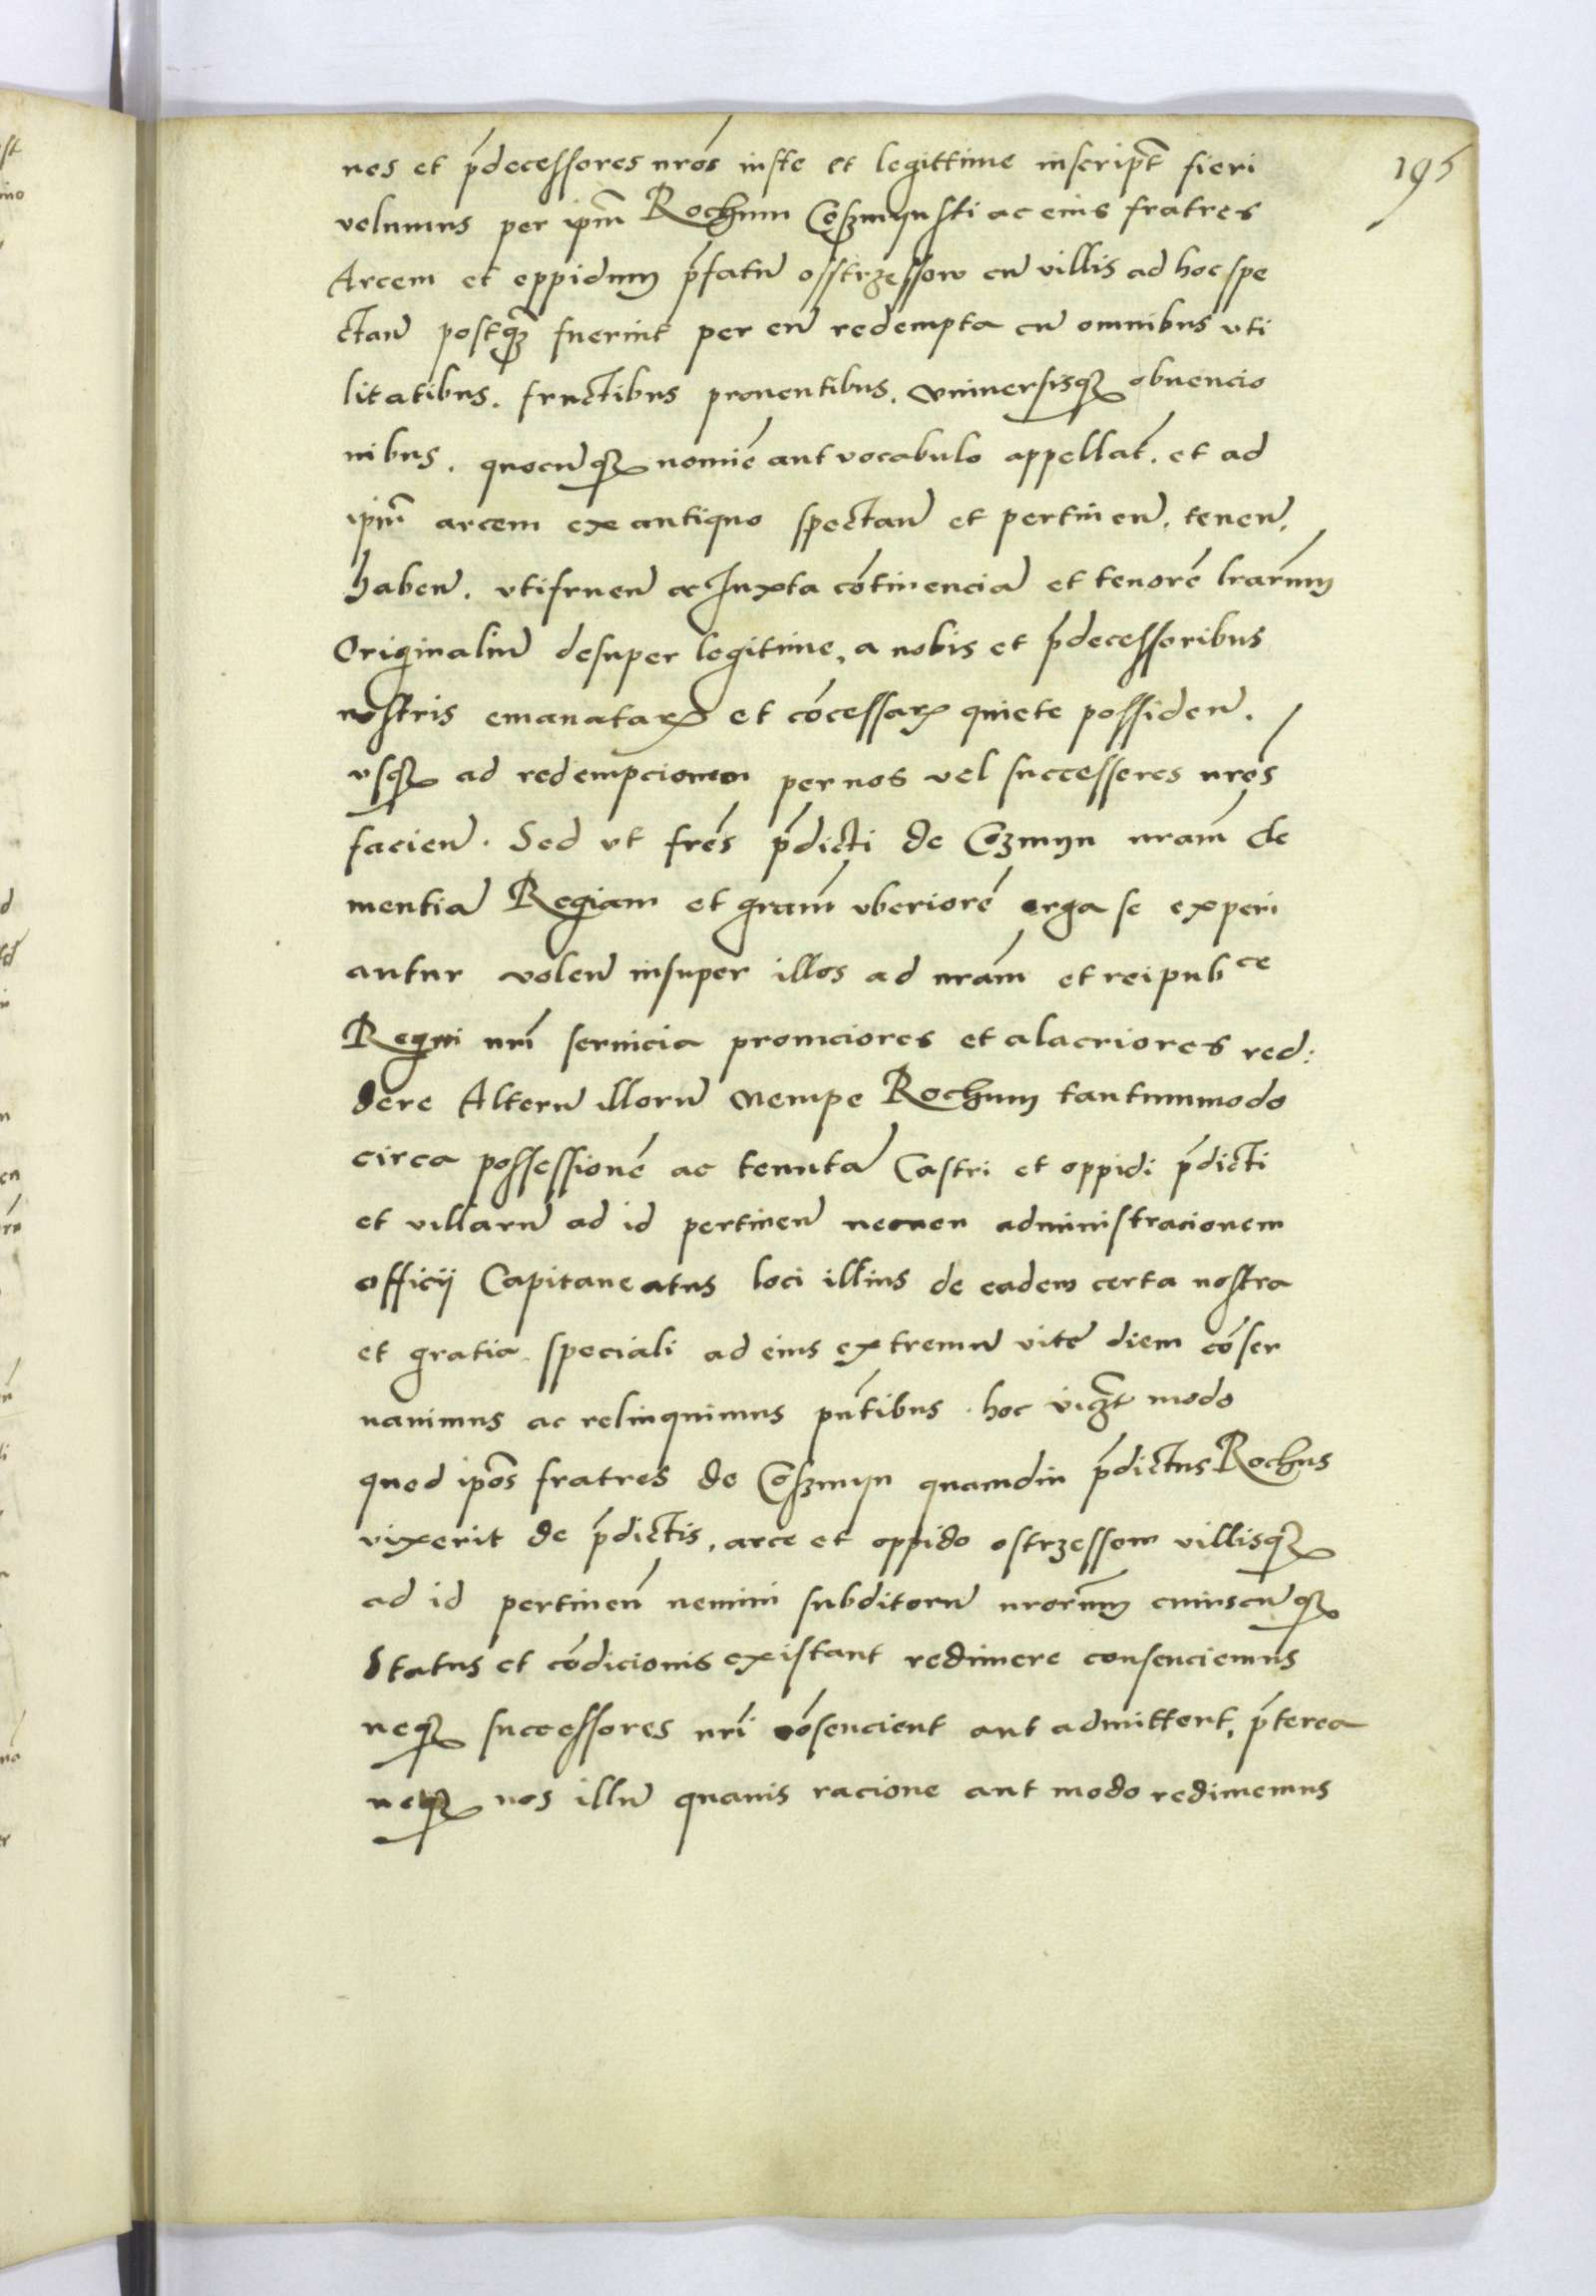 195
nos et p̄decessores nr̄os iuste et legittime inscript̄ fieri
volumus per ip̄m Rochum Coszmynski ac eius fratres
Arcem et oppidum p̄fatū osstrzessow cū villis ad hoc spe
ctan̄ postq̄ȝ fuerint per eū redempta cū omnibus vti
litatibus. fructibus prouentibus. vniuersisqȝ obuencio
nibus. quocūqȝ nomīe aut vocabulo appellat̄. et ad
ip̄m arcem ex antiquo spectan̄ et pertinen̄. tenen̄.
haben̄. vtifruen̄ ac Iuxta cōtinenciā et tenorē lr̄arum
Originaliū desuper legitime, a nobis et p̄decessoribus
nostris emanataꝝ et cōcessaꝝ quiete possiden̄.
vsqȝ ad redempcionem per nos vel successores nr̄os
facien̄. Sed vt fr̄es p̄dicti de Cozmyn nr̄am cle
mentiā Regiam et gr̄am vberiorē erga se experi
antur volen̄ insuper illos ad nr̄am et reipubce
Regni nr̄i seruicia promciores et alacriores red:
dere Alterū illorū Nempe Rochum tantummodo
circa possessionē ac tenutā Castri et oppidi p̄dicti
et villarū ad id pertinen̄ necnon administracionem
officij Capitaneatus loci illius de eadem certa nostra
et gratia speciali ad eius extremū vite diem cōser
uauimus ac relinquimus pn̄tibus. hoc vigȝt modo
quod ip̄os fratres de Coszmyn quamdiu p̄dictus Rochus
vixerit de p̄dictis, arce et oppido ostrzessow villisqȝ
ad id pertinen̄ nemini subditorū nr̄orum cuiuscūqȝ
Status et cōdicionis existant redimere consenciemus
neqȝ successores nr̄i cōsencient aut admittent, p̄terea
neqȝ nos illū quauis racione aut modo redimemus